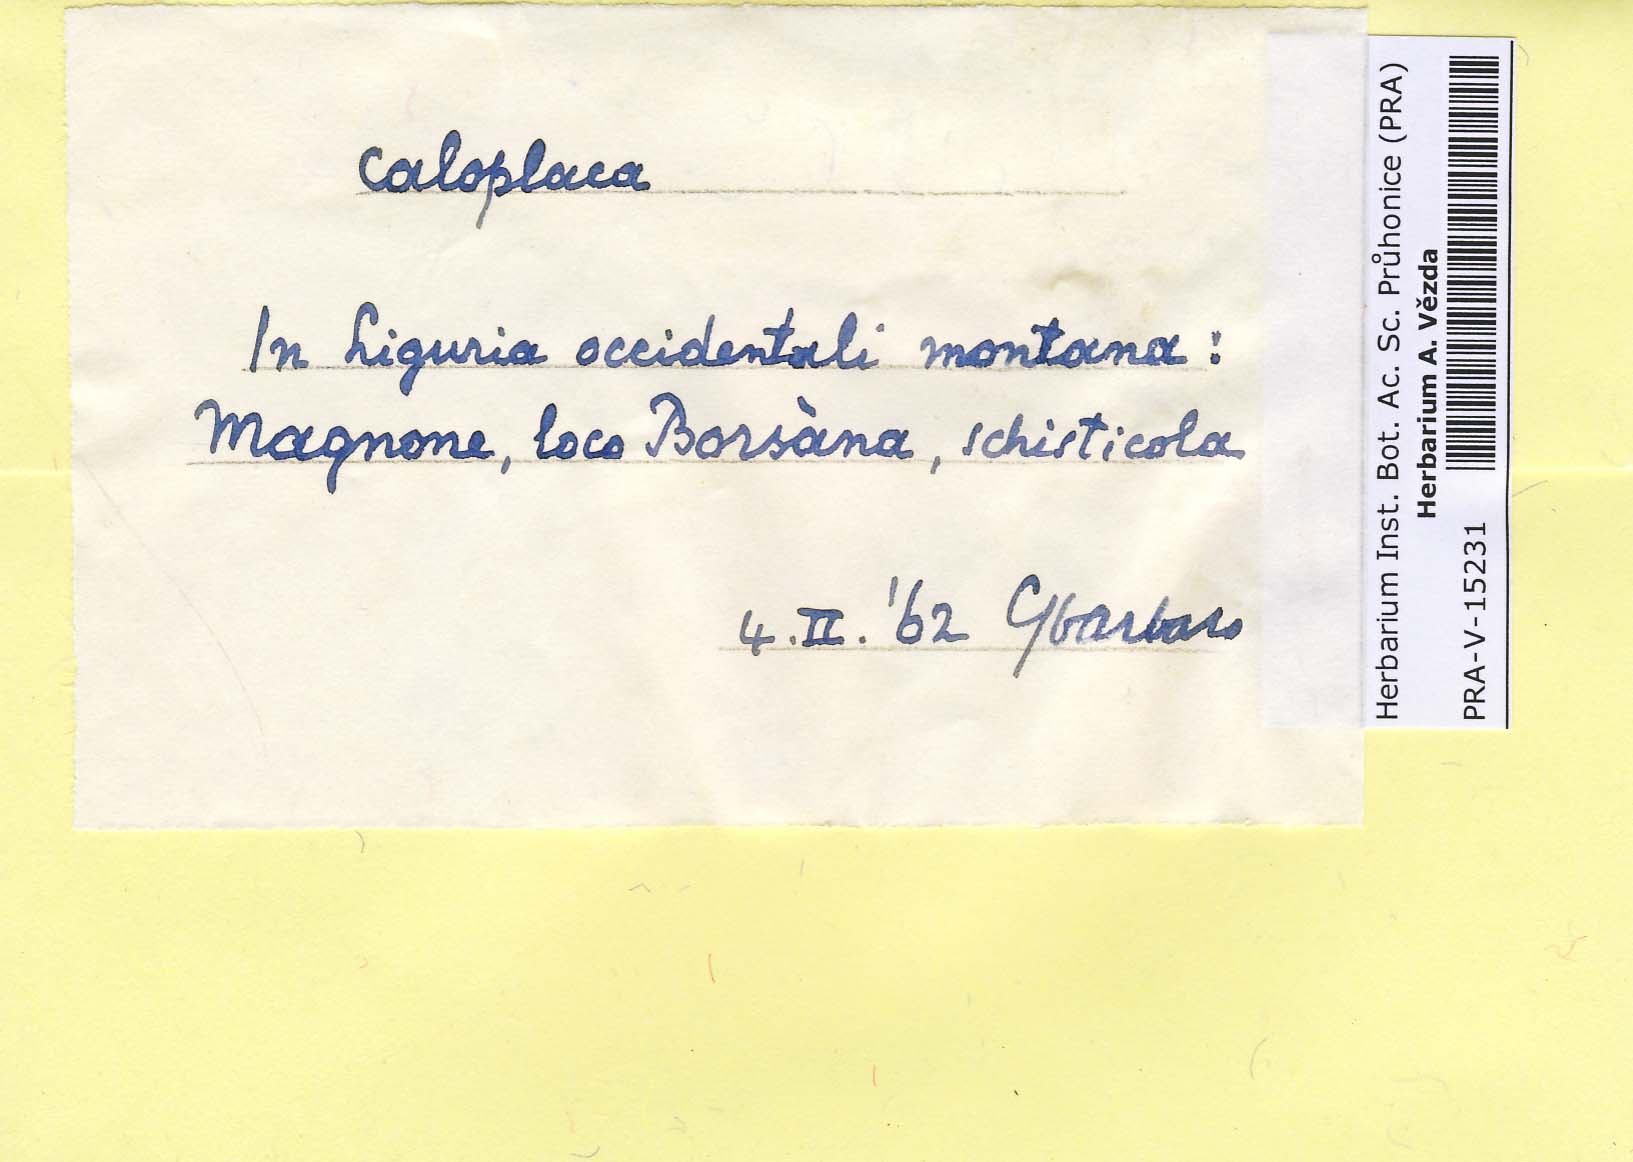 Caloplaca
In Liguria occidentali montana:
Magnone, loco Borsàna, schisticola
4.II.'62 Gbarbaro
Herbarium Inst. Bot. Ac. Sc. Průhonice (PRA)
Herbarium A. Vězda
PRA-V-15231